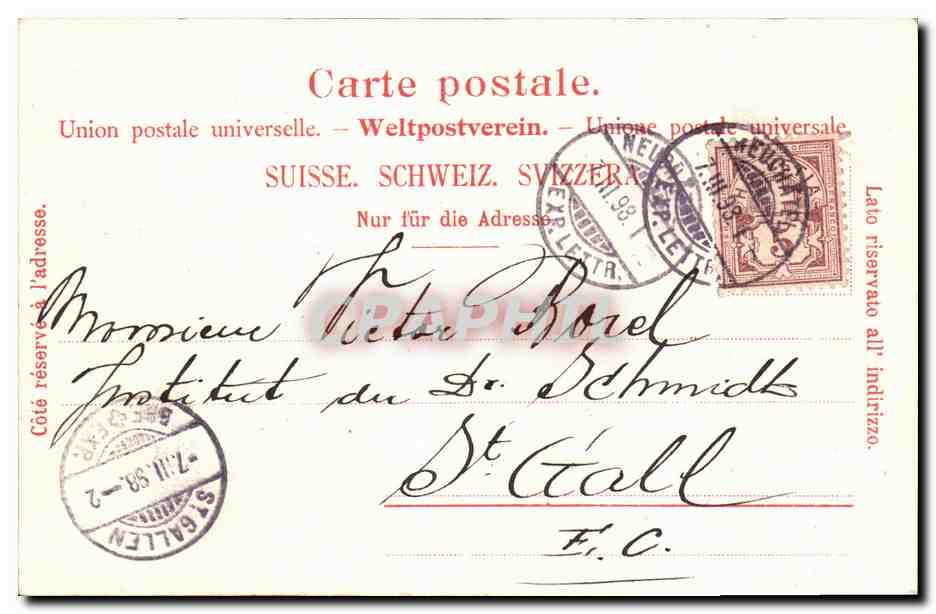 Carte postale.
Union postale universelle. – Weltpostverein. – Unione postale universale
SUISSE. SCHWEIZ. SVIZZERA
Nur für die Adresse.
Côté réservé à l'adresse.
Lato riservato all' indirizzo.
NEUCHATEL
7.III.98.
EXP. LETTR.
NEUCHATEL
7.III.98.
EXP. LETTR.
CPAPHIL
Monsieur Victor Borel
Institut du Dr. Schmidt
St. Gall
E. C.
EXP.
-7.III.98.-2
ST. GALLEN